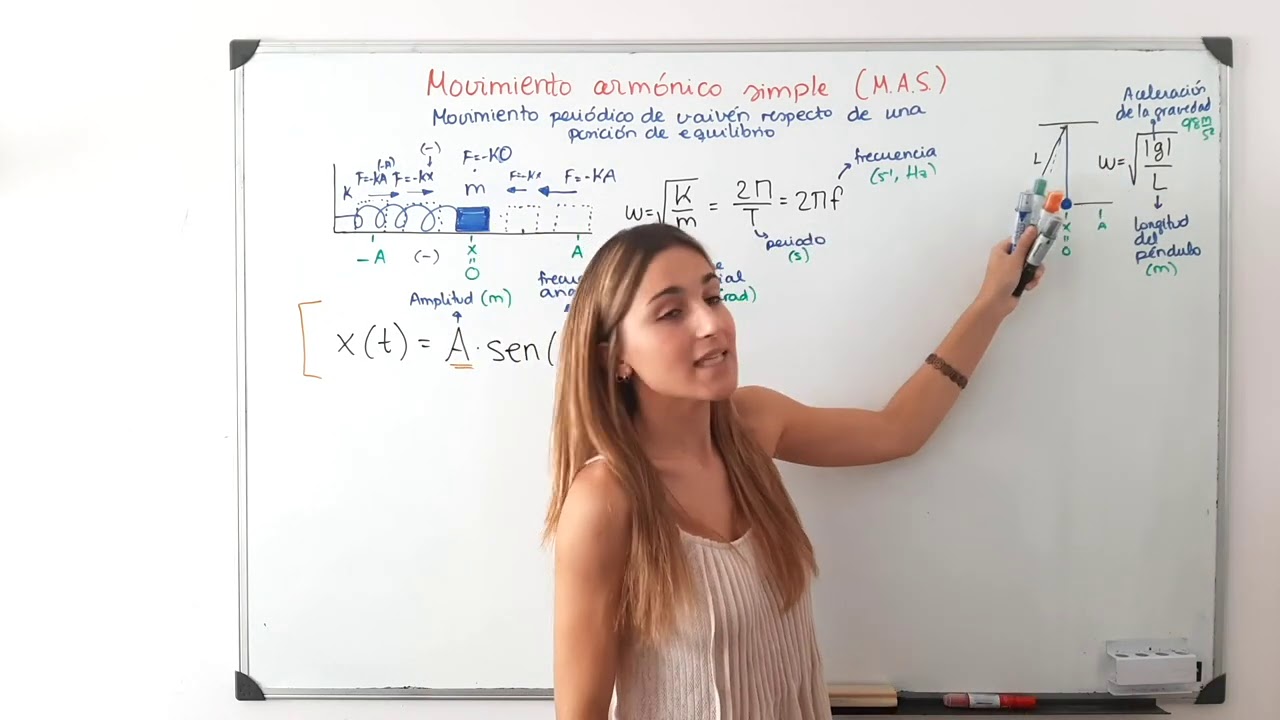 Movimiento armónico simple (M.A.S.)
Movimiento periódico de vaivén respecto de una
posición de equilibrio
(-A) (-)
F=-KA F=-KX
F=-KO
F=-Kx F=-KA
K
m
-A (-) X A
=
O
ω=√K/m = 2Π/T = 2πf
frecuencia
(s⁻¹, Hz)
periodo
(s)
Amplitud (m)
x(t) = A · sen(
rad)
L
X A
=
O
ω=√|g|/L
Aceleración
de la gravedad
9'8 m/s²
longitud
del
péndulo
(m)